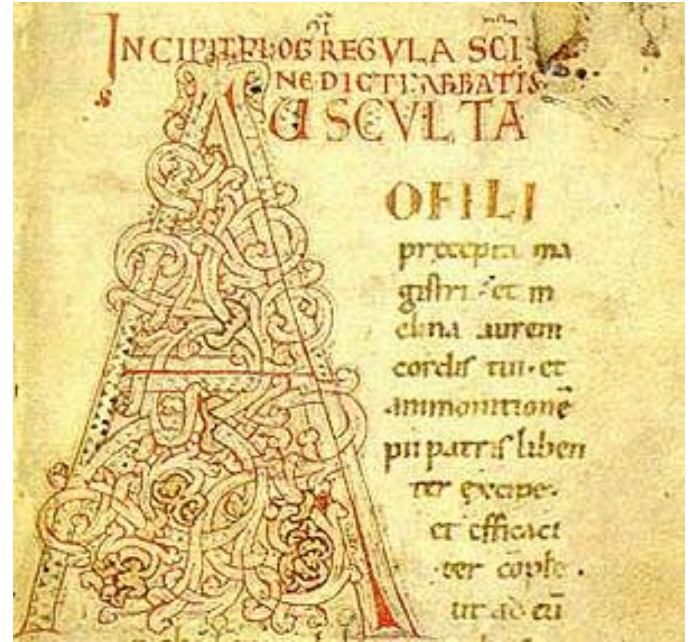 INCIPIT PROG REGULA SCI
NEDICTI ABBATIS
AUSCVLTA
OFILI
precepta ma
gistri · et in
clina aurem
cordis tui · et
ammonitionē
pii patris liben
ter excipe ·
et efficaci
ter cople ·
ut ad eū